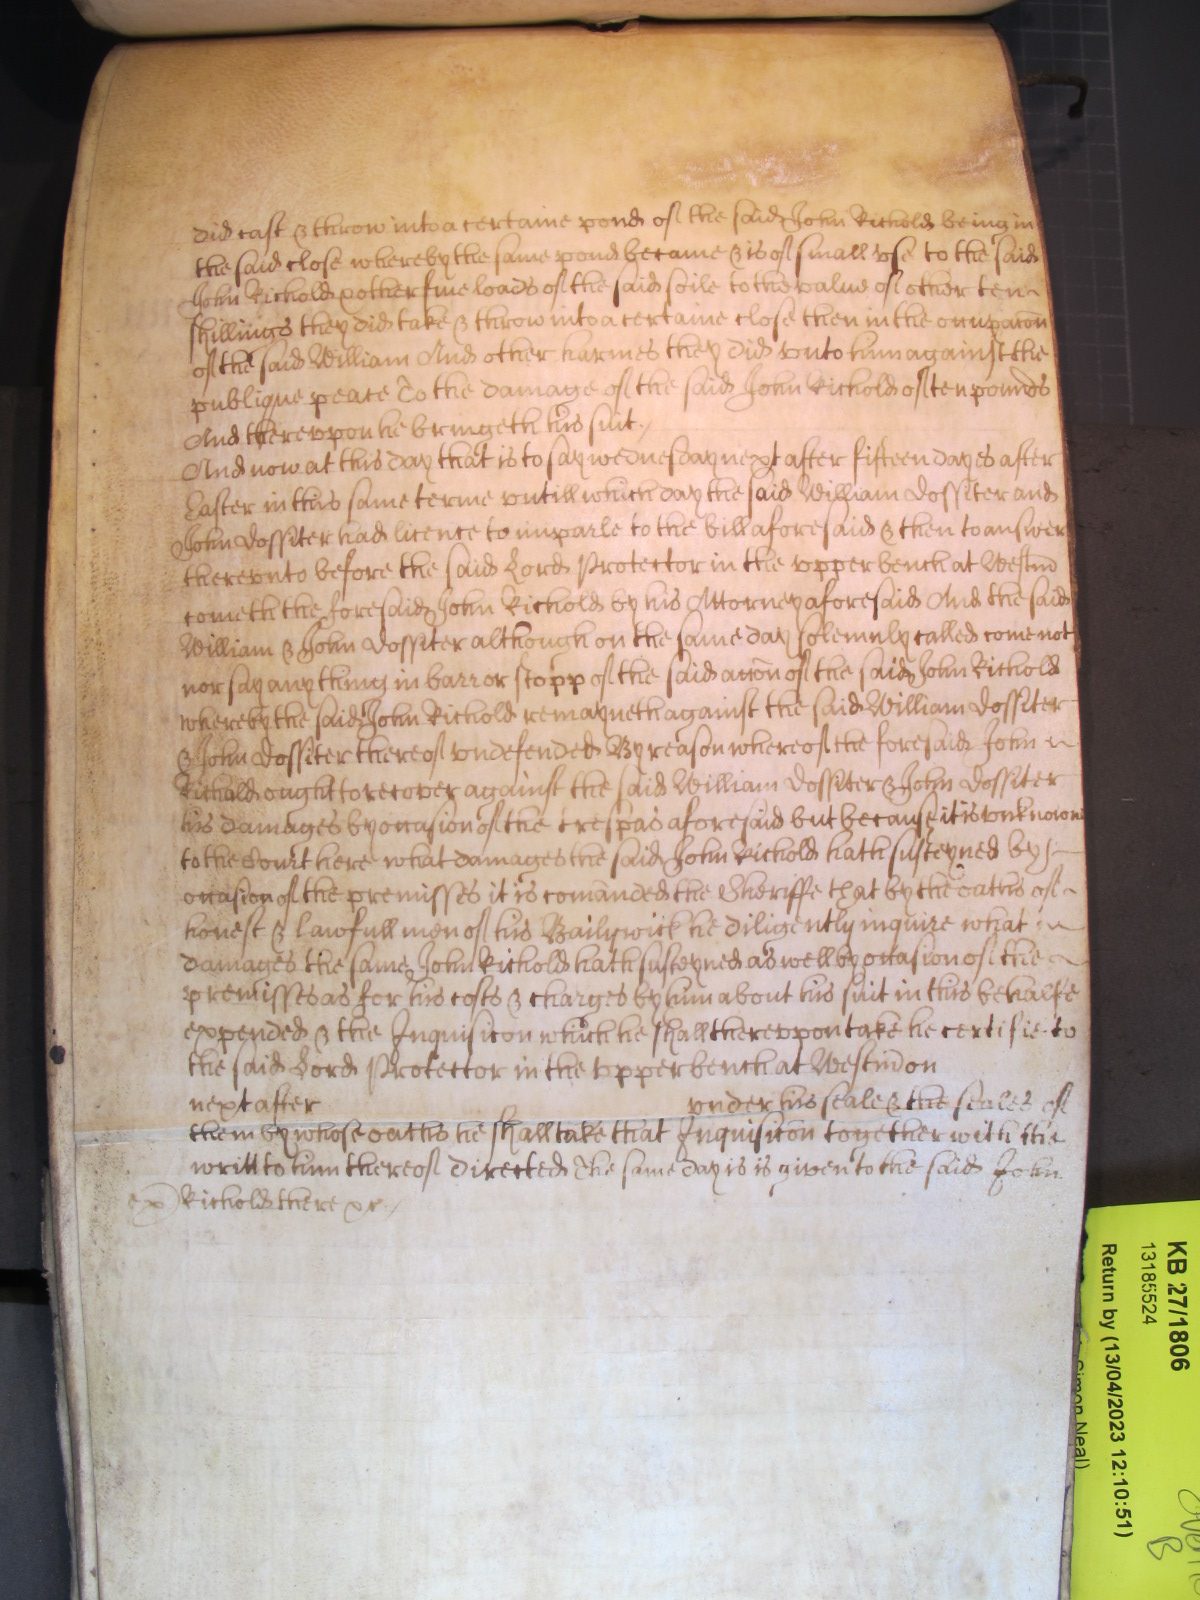 did cast & throw into a certaine pond of the said John Richold being in
the said close whereby the same pond became & is of small vse to the said
John Richold & other fiue loads of the said soile to the value of other ten
shillings they did take & throw into a certaine close then in the occupacon
of the said William And other harmes they did vnto him against the
publique peace To the damage of the said John Richold of ten pounds
And therevpon he bringeth this suit
And now at this day that is to say wednesday next after fifteen dayes after
Easter in this same terme vntill which day the said William Dossiter and
John Dossiter had licence to imparle to the bill aforesaid & then to answer
therevnto before the said Lord Protector in the vpper bench at Westm
cometh the foresaid John Richold by his Attorney aforesaid And the said
William & John Dossiter although on the same day solemnly called come not
nor say any thing in barr or stopp of the said accon of the said John Richold
whereby the said John Richold remayneth against the said William Dossiter
& John Dossiter thereof vndefended By reason whereof the foresaid John
Richold ought to recover against the said William Dossiter & John Dossiter
his damages by occasion of the trespas aforesaid but because it is vnknowne
to the Court here what damages the said John Richold hath susteyned by
occasion of the premisses it is comanded the Sheriffe that by the oaths of
honest & lawfull men of his Bailywick he diligently inquire what
damages the same John Richold hath susteyned as well by occasion of the
premisses as for his costs & charges by him about his suit in this behalfe
expended & the Inquisicon which he shall therevpon take he certifie to
the said Lord Protector in the vpper bench at Westm on
next after vnder his seale & the seales of
them by whose oaths he shall take that Inquisicon together with the
writt to him thereof directed The same day is is given to the said John
ex Richold there &c
KB 27/1806
13185524
Return by (13/04/2023 12:10:51)
Simon Neal)